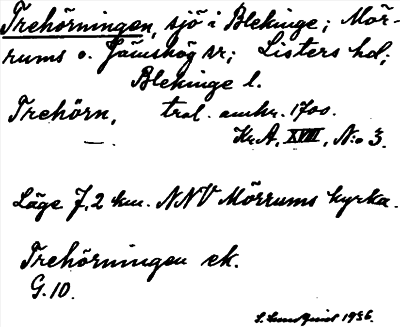 Trehörningen, sjö i Blekinge; Mör-
rums o. Jämshög sr; Listers hd;
Blekinge l.
Trehörn, trol. omkr. 1700.
— . Kr.A, XVIII, N:o 3.
Läge 7,2 km. NNV Mörrums kyrka.
Trehörningen ek.
G. 10.
S. Lundquist 1936.